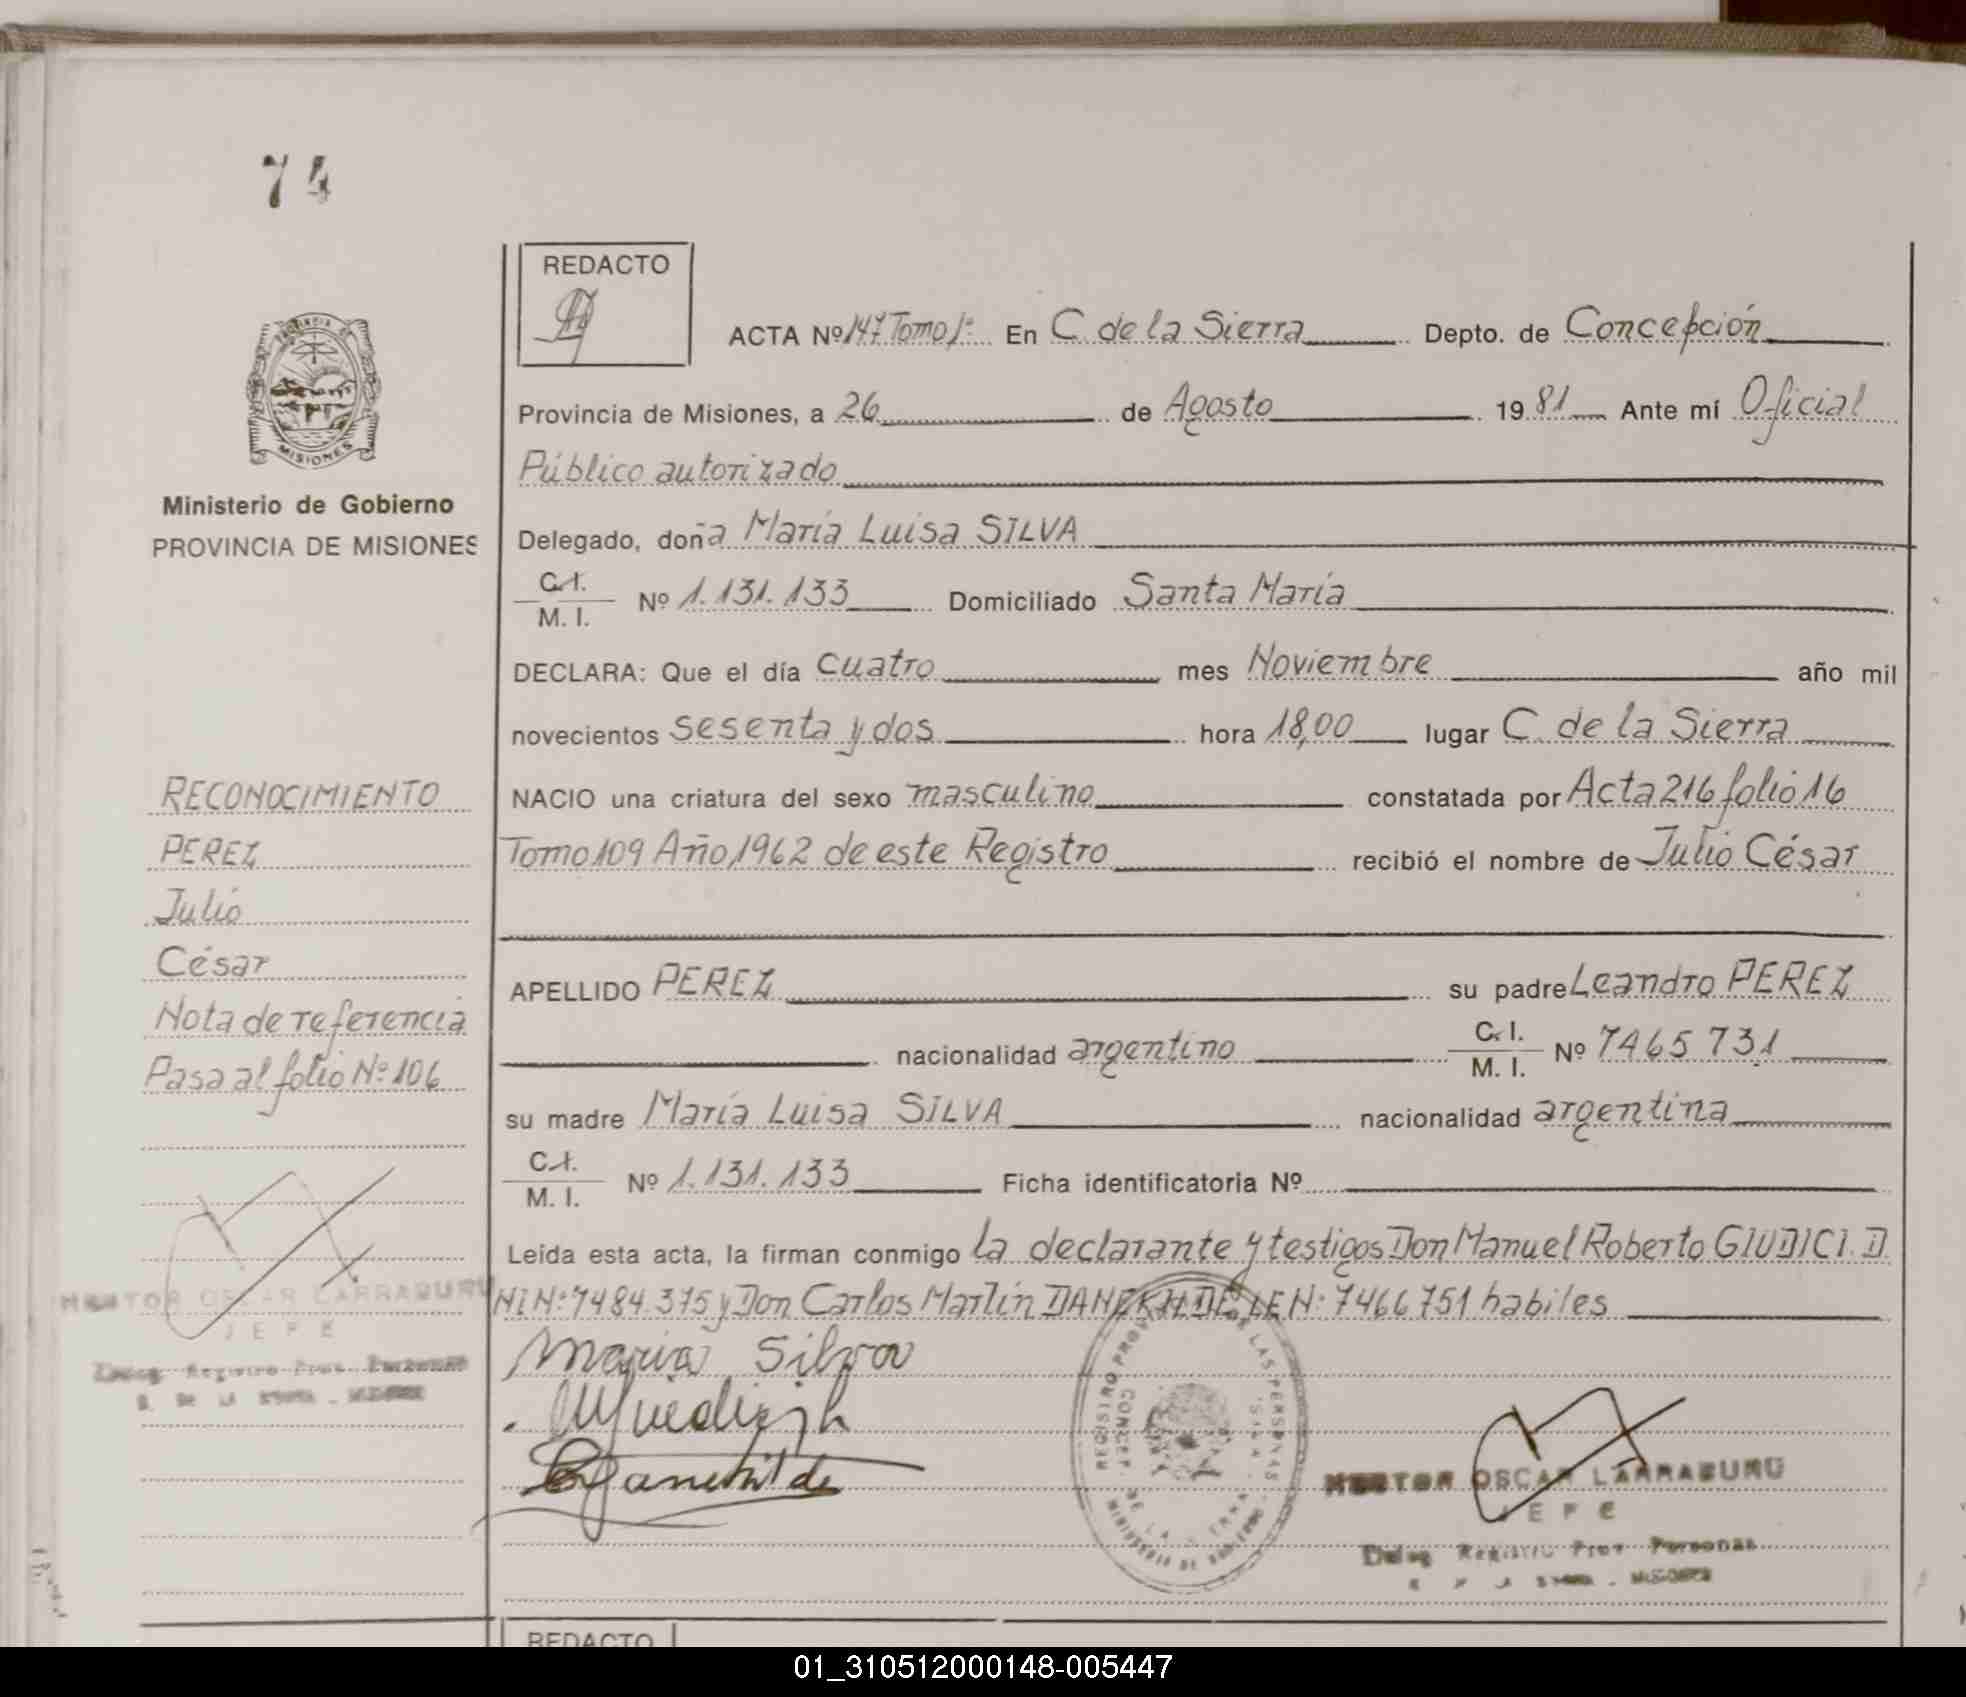 74
REDACTO
ACTA Nº 147 Tomo 1º En C. de la Sierra Depto. de Concepción
Provincia de Misiones, a 26 de Agosto 1981 Ante mí Oficial
Público autorizado
Delegado, doña María Luisa SILVA
C.I.
M. I. Nº 1.131.133 Domiciliado Santa María
DECLARA: Que el día cuatro mes Noviembre año mil
novecientos sesenta y dos hora 18,00 lugar C. de la Sierra
NACIO una criatura del sexo masculino constatada por Acta 216 folio 16
Tomo 109 Año 1962 de este Registro recibió el nombre de Julio César
APELLIDO PEREZ su padre Leandro PEREZ
nacionalidad argentino C. I. M. I. Nº 7465 731
su madre María Luisa SILVA nacionalidad argentina
C.I.
M. I. Nº 1.131.133 Ficha identificatoria Nº
Leída esta acta, la firman conmigo la declarante y testigos Don Manuel Roberto GIUDICI. D.
NI Nº 7484.375 y Don Carlos Martín LE Nº 7466751 habiles
Maria Silva
HECTOR OSCAR LARRABURU
JEFE
Deleg. Registro Prov. Personas
C. DE LA SIERRA - MISIONES
REGISTRO PROV DE LAS PERSONAS
CONCEP. DE LA SIERRA
MINISTERIO DE GOBIERNO
PROVINCIA DE
MISIONES
Ministerio de Gobierno
PROVINCIA DE MISIONES
RECONOCIMIENTO
PEREZ
Julio
César
Nota de referencia
Pasa al folio Nº 106
HECTOR OSCAR LARRABURU
JEFE
Deleg. Registro Prov. Personas
C. DE LA SIERRA - MISIONES
REDACTO
01_310512000148-005447